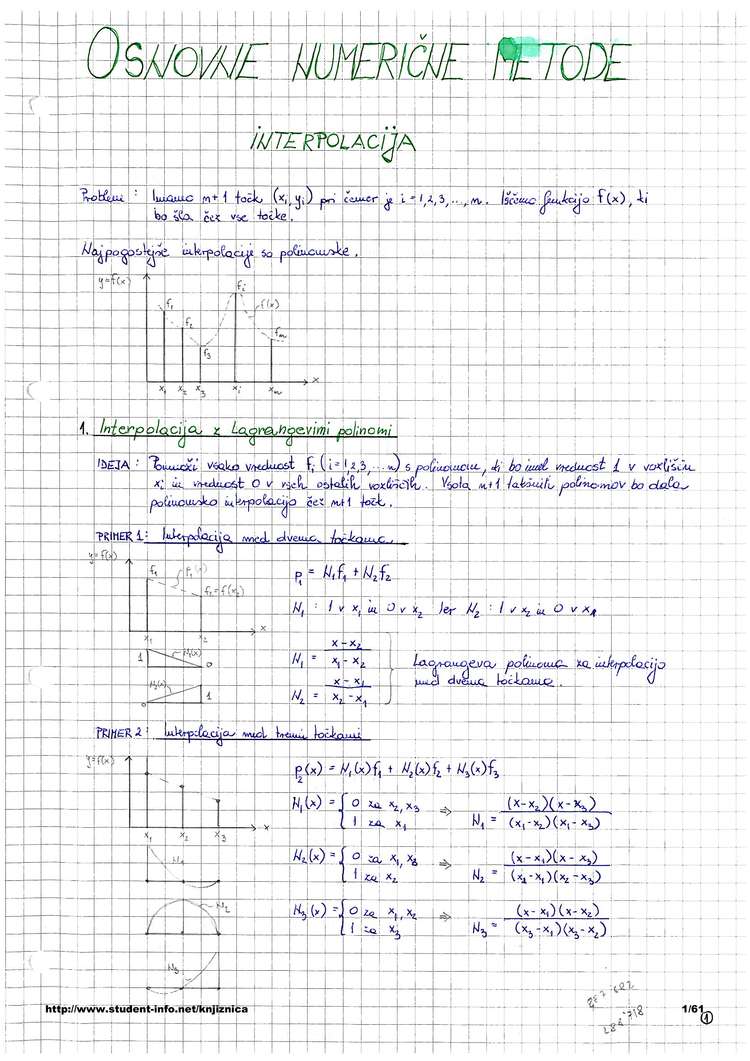 OSNOVNE NUMERIČNE METODE
INTERPOLACIJA
Problem : Imamo n+1 točk (xᵢ, yᵢ) pri čemer je i = 1,2,3, .., n. Iščemo funkcijo f(x), ki
bo šla čez vse točke.
Najpogostejše interpolacije so polinomske.
y=f(x)
f₁ f₂ f₃ fᵢ f(x) fₙ
x₁ x₂ x₃ xᵢ xₙ x
1. Interpolacija z Lagrangevimi polinomi
IDEJA : Pomnoži vsako vrednost fᵢ (i=1,2,3, ... n) s polinomom, ki bo imel vrednost 1 v vozlišču
xᵢ in vrednost 0 v vseh ostalih vozliščih. Vsota n+1 takšnih polinomov bo dala
polinomsko interpolacijo čez n+1 točk.
PRIMER 1: Interpolacija med dvema točkama
y=f(x)
f₁ p₁(x) f₂=f(x₂)
x₁ x₂ x
p₁ = N₁f₁ + N₂f₂
N₁ : 1 v x₁ in 0 v x₂ ter N₂ : 1 v x₂ in 0 v x₁
1 N₁(x) 0
N₁ = (x-x₂)/(x₁-x₂)
N₂(x) 0 1
N₂ = (x-x₁)/(x₂-x₁)
Lagrangeva polinoma za interpolacijo
med dvema točkama.
PRIMER 2: Interpolacija med tremi točkami
y=f(x)
x₁ x₂ x₃ x
p₂(x) = N₁(x)f₁ + N₂(x)f₂ + N₃(x)f₃
N₁(x) = { 0 za x₂, x₃
1 za x₁
⇒ N₁ = (x-x₂)(x-x₃)/(x₁-x₂)(x₁-x₃)
N₁
N₂(x) = { 0 za x₁, x₃
1 za x₂
⇒ N₂ = (x-x₁)(x-x₃)/(x₂-x₁)(x₂-x₃)
N₂
N₃(x) = { 0 za x₁, x₂
1 za x₃
⇒ N₃ = (x-x₁)(x-x₂)/(x₃-x₁)(x₃-x₂)
N₃
http://www.student-info.net/knjiznica
1/61
1